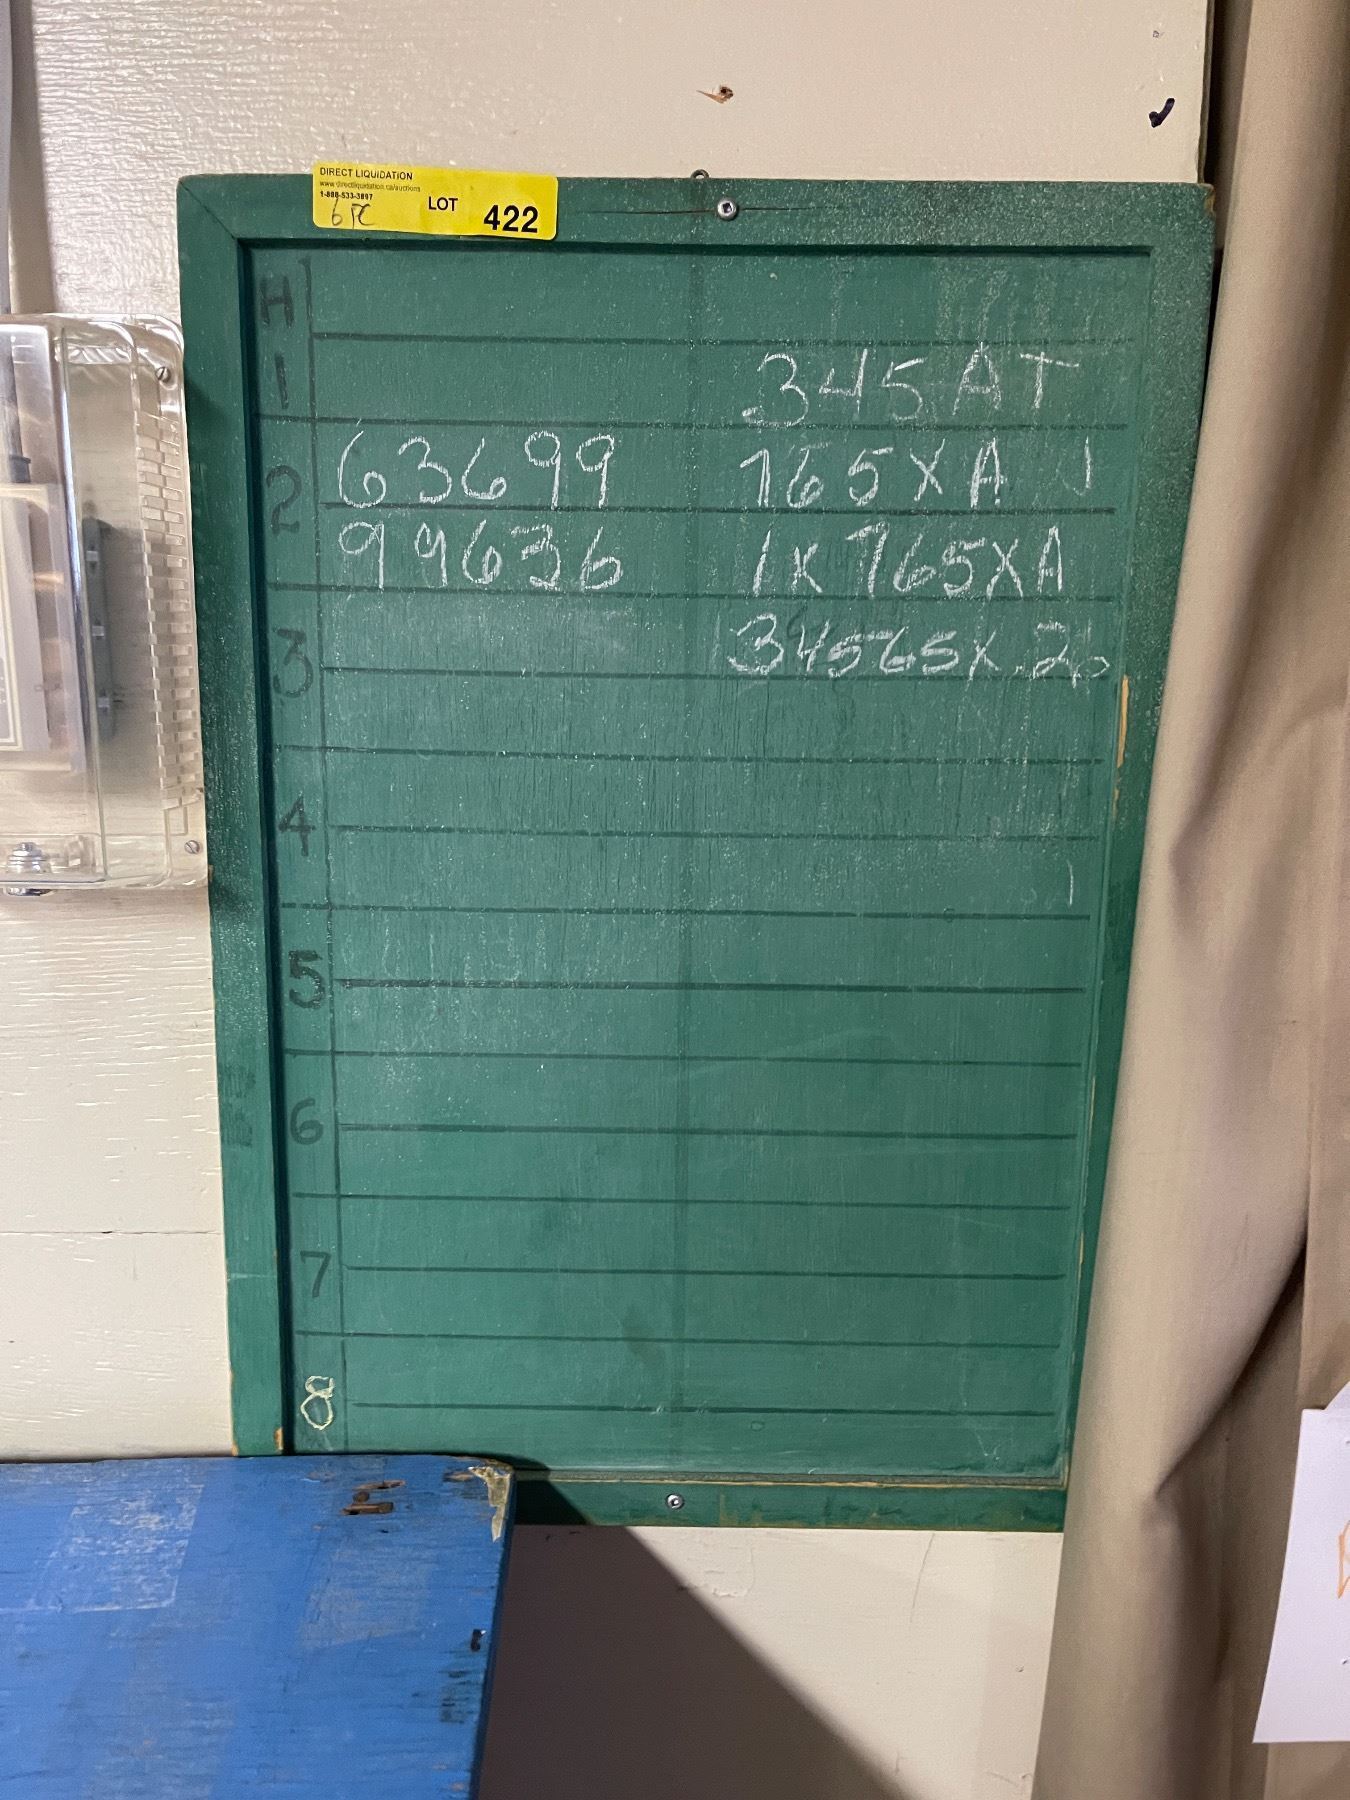 DIRECT LIQUIDATION
www.directliquidation.ca/auctions
1-888-533-3897
6 PC
LOT 422
H
1 345 AT
63699 765XA J
2
99636 1X765XA
34565X 20
3
4
1
5
6
7
8